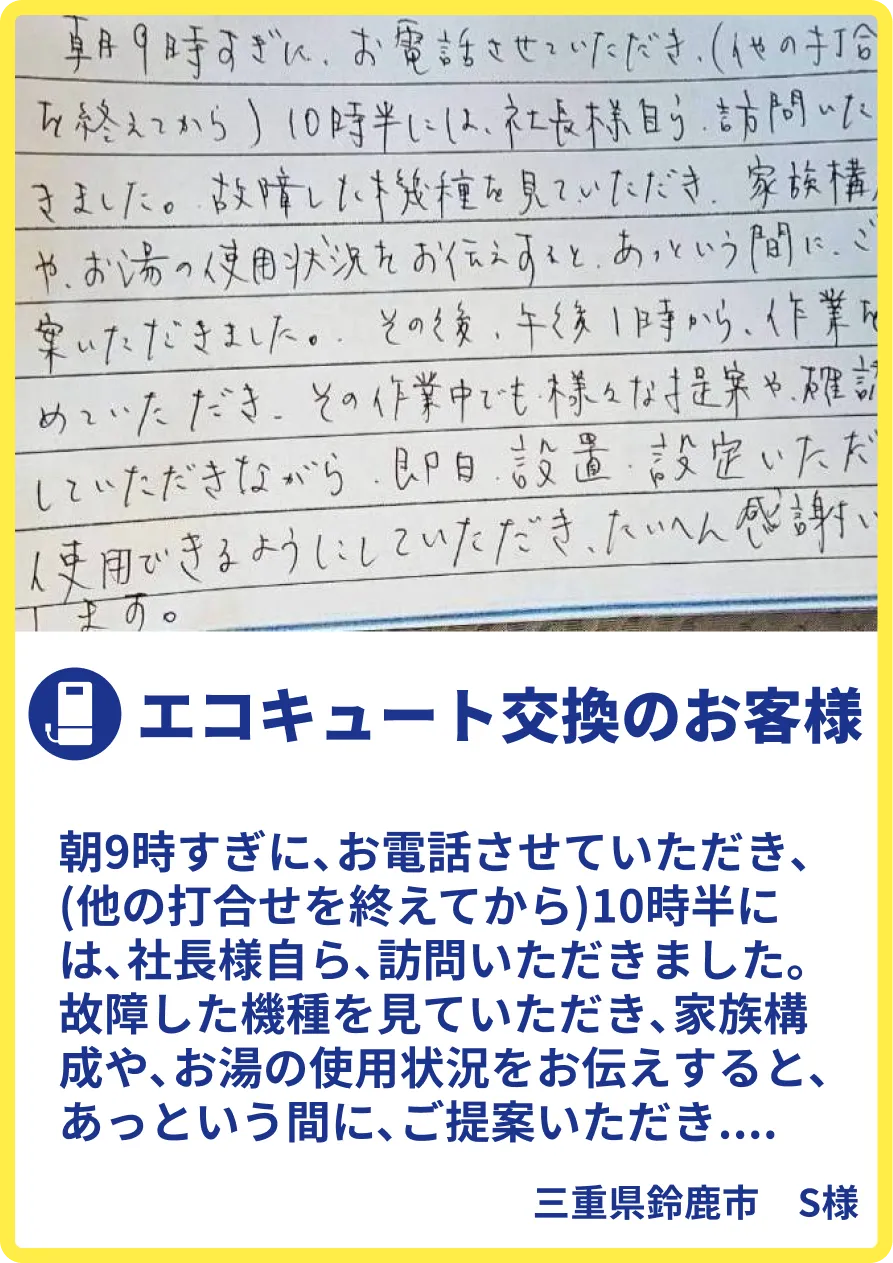 朝9時すぎに、お電話させていただき、(他の打合
を終えてから)10時半には、社長様自ら、訪問いた
きました。故障した機種を見ていただき、家族構
や、お湯の使用状況をお伝えすると、あっという間に、ご
案いただきました。その後、午後1時から、作業を
めていただき、その作業中でも、様々な提案や、確認
していただきながら、即日、設置、設定いただ
使用できるようにしていただき、たいへん感謝
します。
エコキュート交換のお客様
朝9時すぎに、お電話させていただき、
(他の打合せを終えてから)10時半に
は、社長様自ら、訪問いただきました。
故障した機種を見ていただき、家族構
成や、お湯の使用状況をお伝えすると、
あっという間に、ご提案いただき....
三重県鈴鹿市　S様